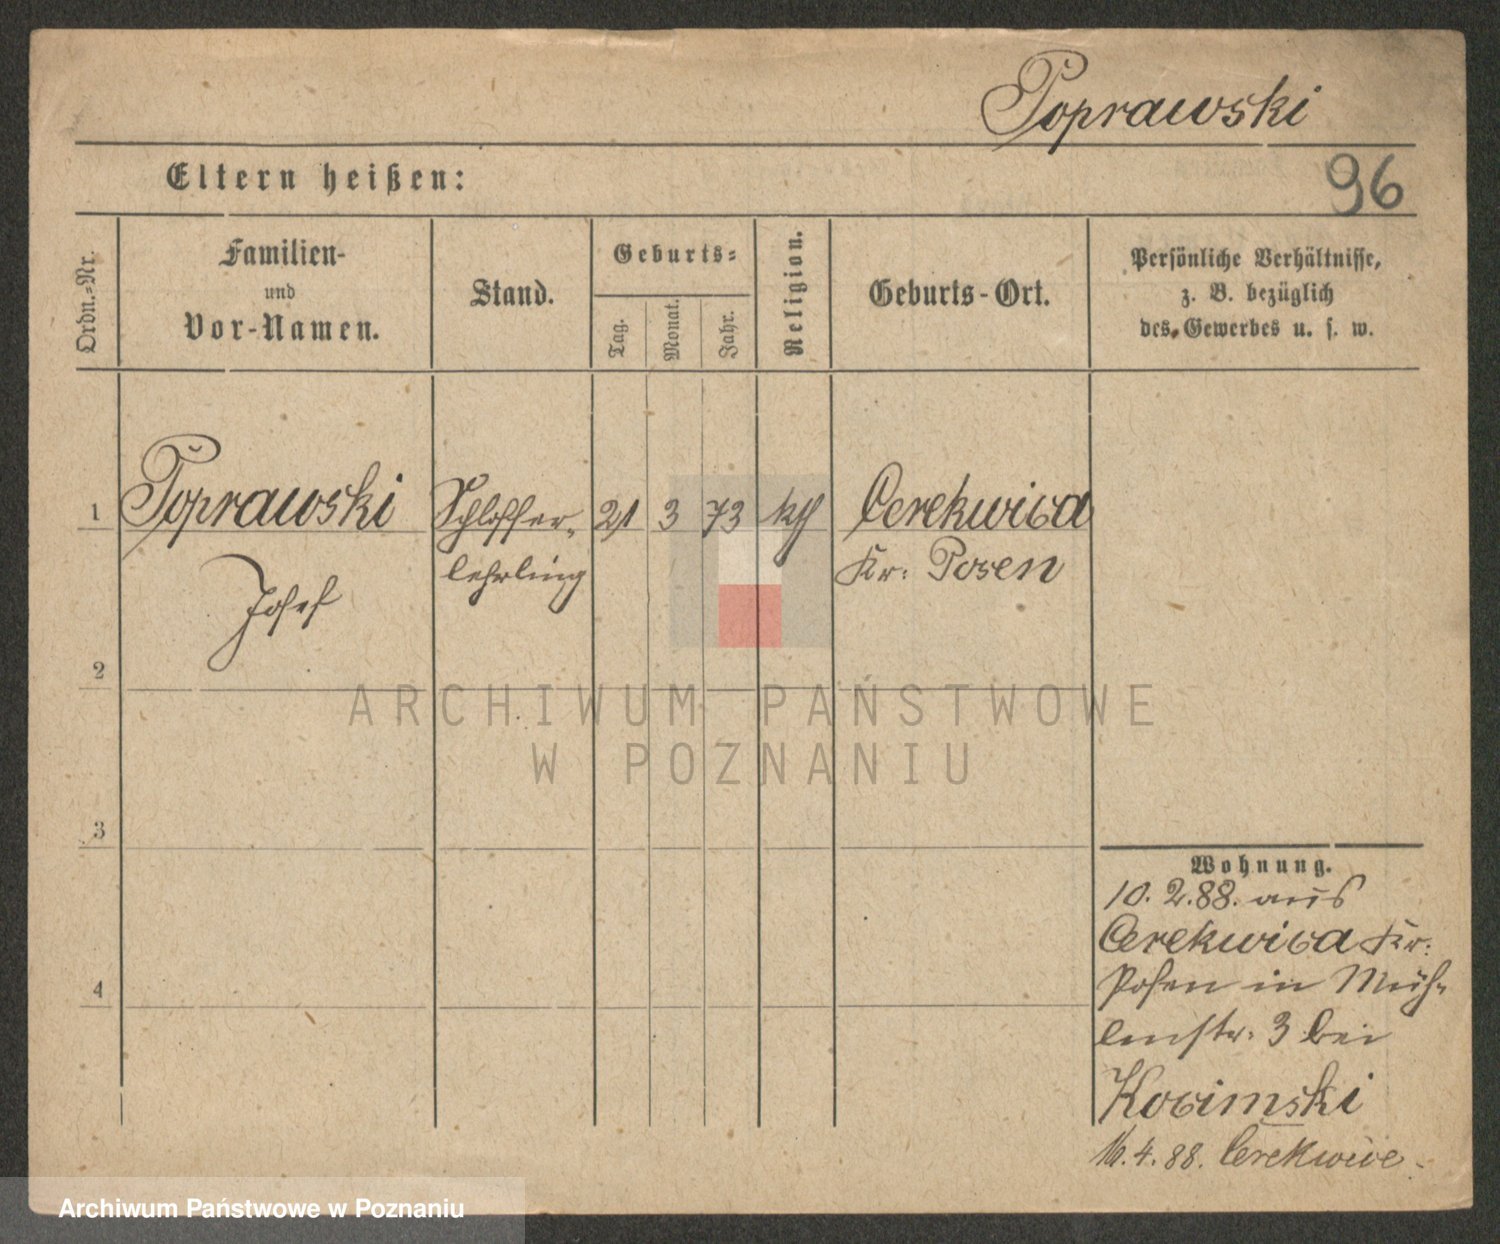 Poprawski
96
Eltern heißen:
Ordn.=Nr.
Familien-
und
Vor-Namen.
Stand.
Geburts=
Tag.
Monat.
Jahr.
Religion.
Geburts-Ort.
Persönliche Verhältnisse,
z. B. bezüglich
des Gewerbes u. s. w.
1 Poprawski Schlosser- 21 3 73 kth Cerekwica
lehrling Kr: Posen
Josef
2
ARCHIWUM PAŃSTWOWE
W POZNANIU
3
4
Wohnung.
10. 2. 88. aus
Cerekwica Kr:
Posen in Müh-
lenstr: 3 bei
16. 4. 88.
Archiwum Państwowe w Poznaniu